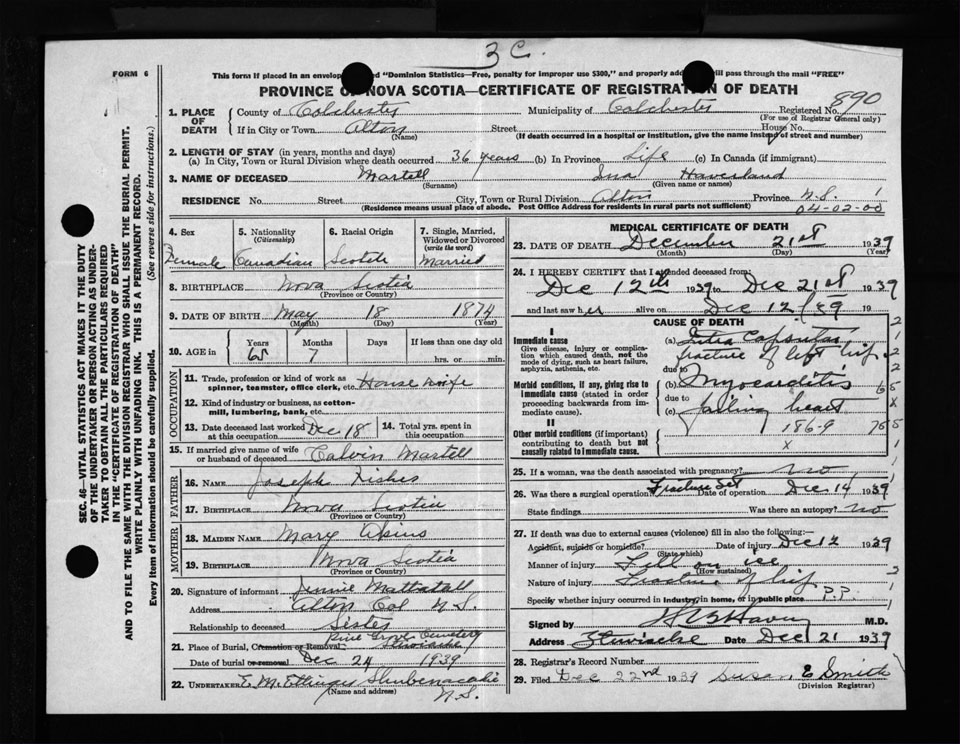 3 C.
FORM 6
This form if placed in an envelop d "Dominion Statistics—Free, penalty for improper use $300," and properly add will pass through the mail "FREE"
PROVINCE OF NOVA SCOTIA—CERTIFICATE OF REGISTRATION OF DEATH
1. PLACE OF DEATH County of Colchester Municipality of Colchester Registered No. 890
(For use of Registrar General only)
If in City or Town Alton Street House No.
(Name) (If death occurred in a hospital or institution, give the name instead of street and number)
2. LENGTH OF STAY (in years, months and days)
(a) In City, Town or Rural Division where death occurred 36 years (b) In Province Life (c) In Canada (if immigrant)
3. NAME OF DECEASED Martell Ina Haverland
(Surname) (Given name or names)
RESIDENCE No. Street City, Town or Rural Division Alton Province N.S. 1
(Residence means usual place of abode. Post Office Address for residents in rural parts not sufficient) 04-02-00
4. Sex Female
5. Nationality (Citizenship) Canadian
6. Racial Origin Scotch
7. Single, Married, Widowed or Divorced (write the word) Married
8. BIRTHPLACE Nova Scotia
(Province or Country)
9. DATE OF BIRTH May 18 1874
(Month) (Day) (Year)
10. AGE in Years 65 Months 7 Days If less than one day old hrs. or min.
OCCUPATION
11. Trade, profession or kind of work as spinner, teamster, office clerk, etc. House wife
12. Kind of industry or business, as cotton-mill, lumbering, bank, etc.
13. Date deceased last worked at this occupation Dec 18
14. Total yrs. spent in this occupation
15. If married give name of wife or husband of deceased Calvin Martell
FATHER
16. NAME Joseph
17. BIRTHPLACE Nova Scotia
(Province or Country)
MOTHER
18. MAIDEN NAME Mary
19. BIRTHPLACE Nova Scotia
(Province or Country)
20. Signature of informant Jennie Mattatall
Address Alton Col N.S.
Relationship to deceased Sister
21. Place of Burial, Cremation or Removal Pine Grove Cemetery
Date of burial or removal Dec 24 1939
22. UNDERTAKER E. M. Ettinger Shubenacadie
(Name and address) N.S.
MEDICAL CERTIFICATE OF DEATH
23. DATE OF DEATH December 21st 1939
(Month) (Day) (Year)
24. I HEREBY CERTIFY that I attended deceased from
Dec 12th 1939 to Dec 21st 1939
and last saw her alive on Dec 12/39 19
CAUSE OF DEATH
I
Immediate cause
Give disease, injury or complication which caused death, not the mode of dying, such as heart failure, asphyxia, asthenia, etc.
(a) Intra Capsular
fracture of left hip
due to
Morbid conditions, if any, giving rise to immediate cause (stated in order proceeding backwards from immediate cause).
(b) Myocarditis
due to
(c) failing heart
II
186-9
Other morbid conditions (if important) contributing to death but not causally related to Immediate cause.
x
25. If a woman, was the death associated with pregnancy? no
26. Was there a surgical operation? Fracture set Date of operation Dec 14 1939
State findings Was there an autopsy? no
27. If death was due to external causes (violence) fill in also the following:—
Accident, suicide or homicide? Date of injury Dec 12 1939
(State which)
Manner of injury Fell on ice
(How sustained)
Nature of injury Fracture of hip
Specify whether injury occurred in industry, in home, or in public place P.P.
Signed by M.D.
Address Date Dec 21 1939
28. Registrar's Record Number
29. Filed Dec 22nd 1939 Susan E Smith
(Division Registrar)
SEC. 46—VITAL STATISTICS ACT MAKES IT THE DUTY
OF THE UNDERTAKER OR PERSON ACTING AS UNDERTAKER TO OBTAIN ALL THE PARTICULARS REQUIRED
IN THE "CERTIFICATE OF REGISTRATION OF DEATH"
AND TO FILE THE SAME WITH THE DIVISION REGISTRAR WHO SHALL ISSUE THE BURIAL PERMIT.
WRITE PLAINLY WITH UNFADING INK. THIS IS A PERMANENT RECORD.
Every item of information should be carefully supplied. (See reverse side for instructions.)